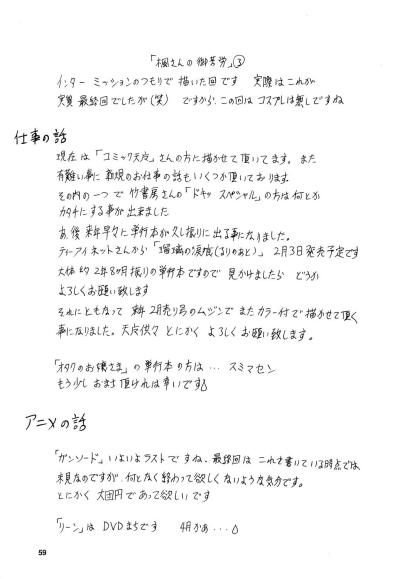 「楓さんの御苦労」③
インター ミッションのつもりで 描いた回です 実際は これが
実質 最終回でしたが(笑) ですから、この回は コスプレは無しですね
仕事の話
現在 は 「コミック天左」さんの方に描かせて頂いてます。また
有難い事に 新規のお仕事の話も いくつか頂いております
その内の一つで 竹書房さんの「ドキッ スペシャル」の方は何とか
カタチにする事が 出来ました
あ、後 来年早々に 単行本が久し振りに 出る事になりました。
ティーアイネットさんから 「瑠璃の涙痕(るりのあと)」 2月3日発売予定です
大体 約 2年8ヶ月振りの単行本ですので 見かけましたら どうか
よろしくお願い致します
それにともなって 来年 2月売り号のムジンで またカラー付で 描かせて頂く
事になりました。天左供々 とにかく よろしくお願い致します。
「オタクのお嬢さま」の 単行本の方は … スミマセン
もう少し おまち頂ければ幸いです
アニメの話
「ガンソード」いよいよラストですね、最終回は これを書いている時点では
未見なのですが、何となく終わって欲しくないような気分です。
とにかく 大団円であって欲しいです
「リーン」は DVDまちです 4月かぁ…。
59